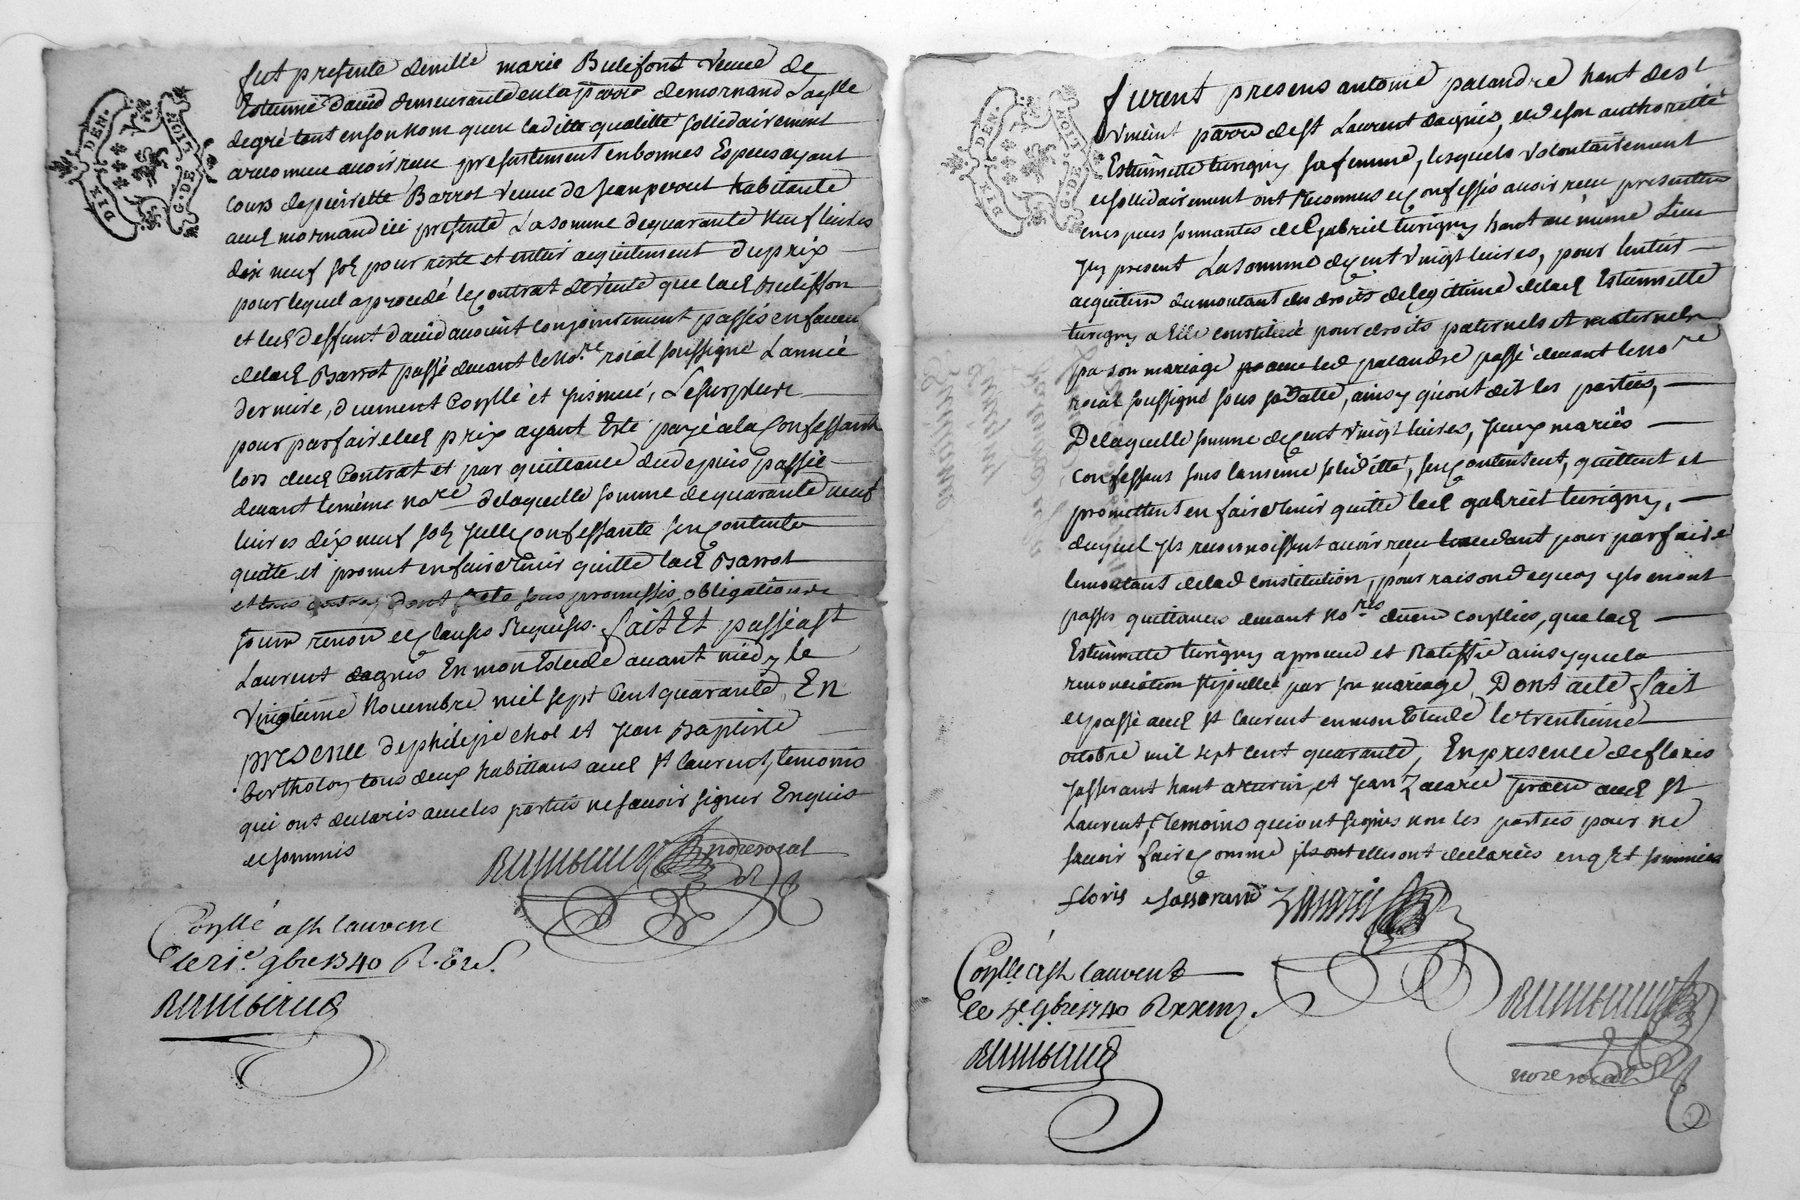 DIX DEN.
G. DE LION
fut presente demlle marie Bulifont veuve de
Estienne david demeurante en la parre de mornand Laqlle
de gré tant en son nom quen laditte qualitté sollidairement
a reconnu avoir receu presentement en bonnes Especes ayant
cours de pierrette Barrot veuve de Jean perout habitante
aud mornand icii presente La somme de quarante neuf livres
dix neuf sols pour reste et entier acquittement du prix
pour lequel a procedé le contrat de vente que lad Bulisson
et led deffunt david avoint conjointement passés en faveur
de lad Barrot passé devant le nore roial soussigné L'année
derniere, duement Contllé et jnsinué, Le surplus
pour parfaire led prix ayant Esté payé a la Confessante
lors dud Contrat et par quittance du depuis passée
devant le même nore de laquelle somme de quarante neuf
livres dix neuf sols jcelle Confessante sen Contente
quitte et promet en faire tenir quitte lad Barrot
et tous autres Dont acte sous promesses obligations
soum renon et Clauses Requises. fait Et passé a st
Laurent dagnis En mon Estude avant midy le
vingtieme Novembre mil sept Cent quarante, En
presence de philipe chol et Jean Baptiste
Bertholon tous deux habittans aud st laurent, temoins
qui ont declarés avec les parties ne savoir signer Enquis
et sommis
nore roial
Contllé a st laurent
le 21e. 9bre 1740 R.
DIX DEN.
G. DE LION
furent presens antoine palandre habt de st
vincint parre de st Laurent dagnis, et de son authoritté
Estiennette turigny sa femme, lesquels volontairement
et sollidairement ont reconnus et confessés avoir receu presentemt
en especes sonnantes de Gabriel turigny habt au même Lieu
jcy present La somme de cent vingt livres, pour lentier
acquittem du montant des droits de legittime de lad Estiennette
turigny a Elle constitué pour droits paternels et maternels
par son mariage avec led palandre passé devant le nore
roial soussigné sous sa datte, ainsy qu'ont dit les parties,
De laquelle somme de cent vingt livres, jceux mariés
confessans sous la même soliditté, sen contentent, quittent et
promettent en faire tenir quitte led gabriel turigny,
duquel jls reconnoissent avoir receu cidevant pour parfaire
le montant de lad constitution, pour raison de quoy jls en ont
passés quittances devant nores duem contllées, que lad
Estiennette turigny aprouve et Ratiffie ainsy que la
renonciation stipullée par son mariage, Dont acte fait
et passé aud st laurent en mon Etude le trentieme
octobre mil sept cent quarante, En presence de floris
Jasserant habt et Jean Zacarie aud st
Laurent, temoins qui ont signés non les parties pour ne
savoir faire comme elles ont declarées enqt sommées
floris Jasserand
Contllé a st laurent
le 5e. 9bre 1740
nore roial